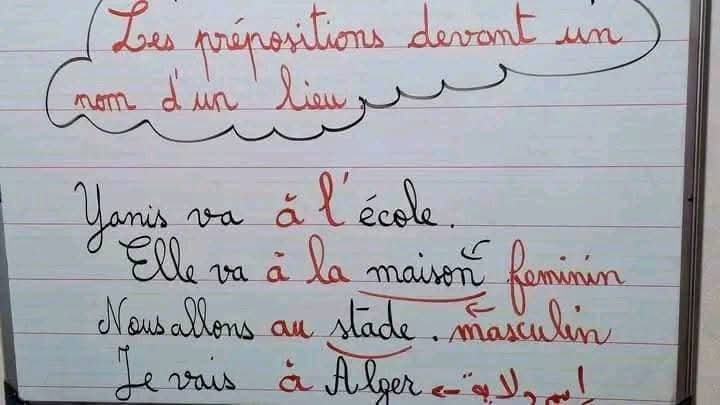 Les prépositions devant un
nom d'un lieu
Yanis va à l'école.
Elle va à la maison feminin
Nous allons au stade. masculin
Je vais à Alger ← إسم ولاية